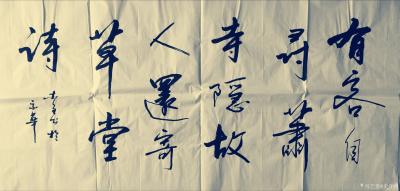 有客自
寻萧
寺隐故
人还寄
草堂
诗